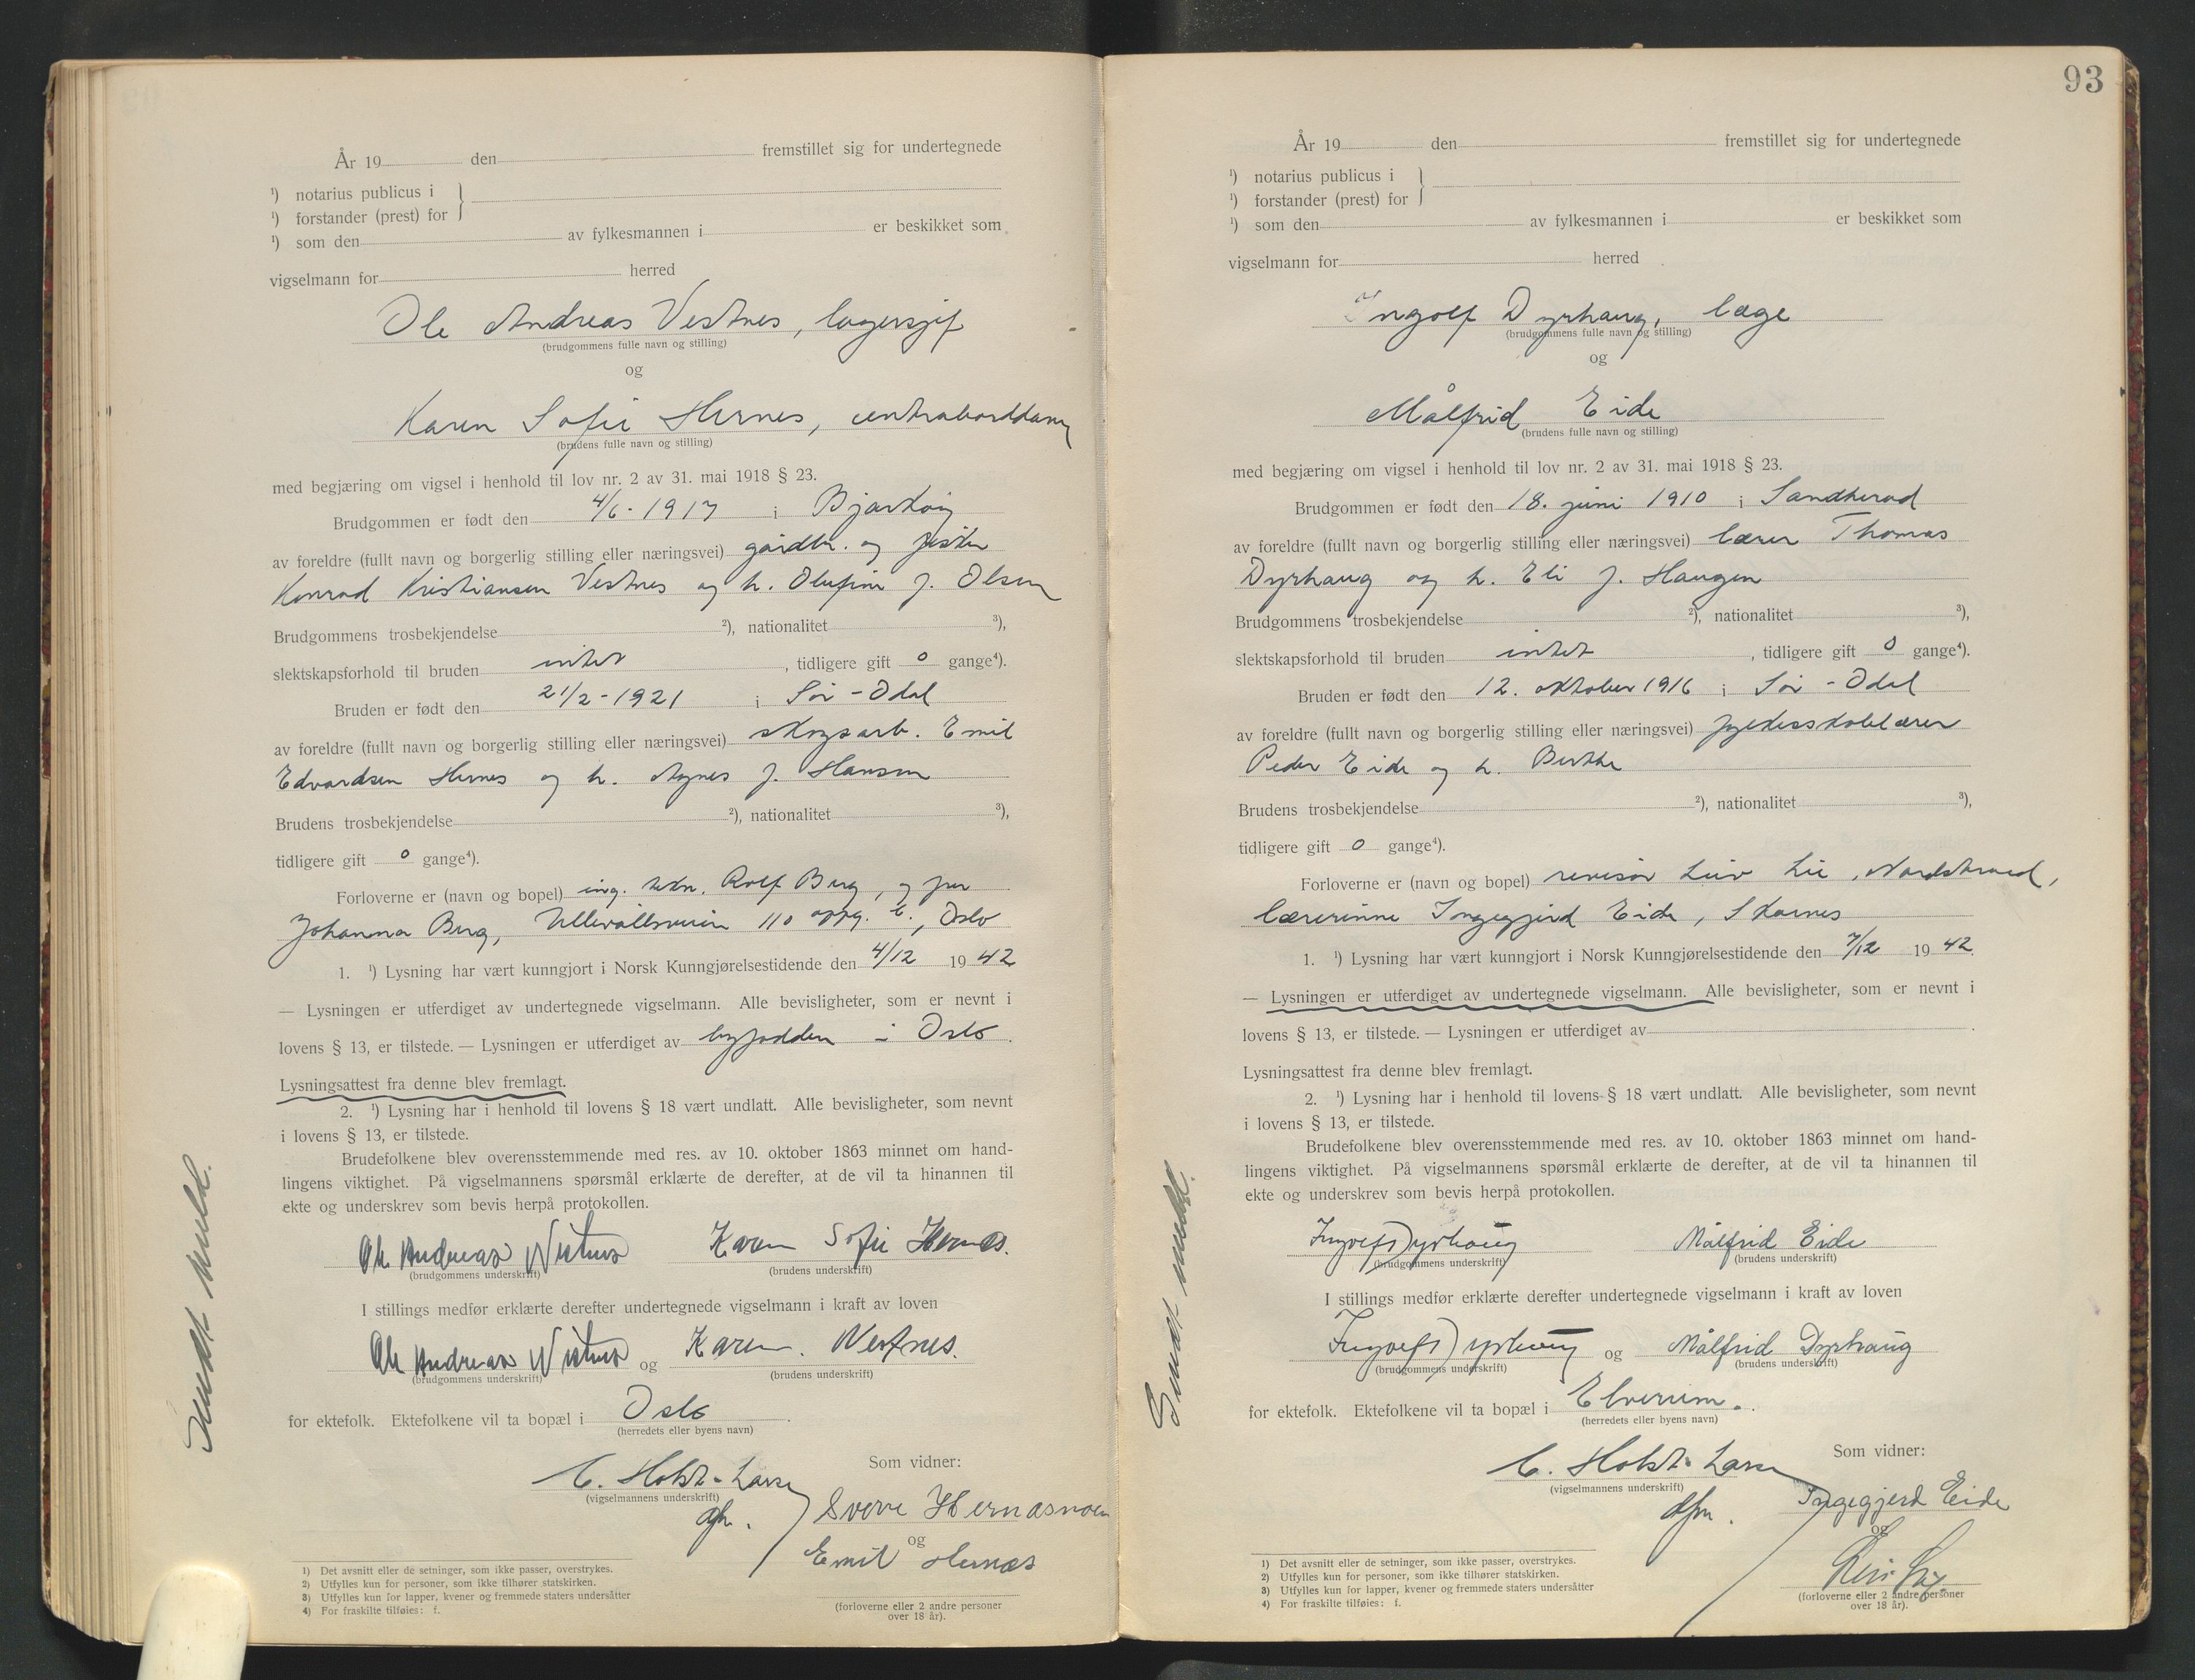 År 19 den fremstillet sig for undertegnede
¹) notarius publicus i
¹) forstander (prest) for
¹) som den av fylkesmannen i er beskikket som
vigselmann for herred
Ole Andreas Vestnes, lagersjef
(brudgommens fulle navn og stilling)
og
Karen Sofie Hernes, centralborddame
(brudens fulle navn og stilling)
med begjæring om vigsel i henhold til lov nr. 2 av 31. mai 1918 § 23.
Brudgommen er født den 4/6-1917 i Bjarkøy
av foreldre (fullt navn og borgerlig stilling eller næringsvei) gårdbr. og fisker
Konrad Kristiansen Vestnes og h. Olufine f. Olsen
Brudgommens trosbekjendelse ²), nationalitet ³),
slektskapsforhold til bruden intet, tidligere gift 0 gange⁴).
Bruden er født den 21/2-1921 i Sør-Odal
av foreldre (fullt navn og borgerlig stilling eller næringsvei) skogsarb. Emil
Edvardsen Hernes og h. Agnes f. Hansen
Brudens trosbekjendelse ²), nationalitet ³),
tidligere gift 0 gange⁴).
Forloverne er (navn og bopel) ing. Rolf Berg, og fru
Johanna Berg, Ullevålsveien 110 oppg. C., Oslo
1. ¹) Lysning har vært kunngjort i Norsk Kunngjørelsestidende den 4/12 1942
— Lysningen er utferdiget av undertegnede vigselmann. Alle bevisligheter, som er nevnt i
lovens § 13, er tilstede. — Lysningen er utferdiget av byfodden i Oslo.
Lysningsattest fra denne blev fremlagt.
2. ¹) Lysning har i henhold til lovens § 18 vært undlatt. Alle bevisligheter, som nevnt
i lovens § 13, er tilstede.
Brudefolkene blev overensstemmende med res. av 10. oktober 1863 minnet om hand-
lingens viktighet. På vigselmannens spørsmål erklærte de derefter, at de vil ta hinannen til
ekte og underskrev som bevis herpå protokollen.
Ole Andreas Vestnes Karen Sofie Hernes.
(brudgommens underskrift) (brudens underskrift)
I stillings medfør erklærte derefter undertegnede vigselmann i kraft av loven
Ole Andreas Vestnes og Karen Vestnes.
(brudgommens underskrift) (brudens underskrift)
for ektefolk. Ektefolkene vil ta bopæl i Oslo.
(herredets eller byens navn)
C. Holst-Larsen Som vidner:
(vigselmannens underskrift)
Sverre Hernæsmoen
og
Emil Hernæs
(forloverne eller 2 andre personer
over 18 år).
1) Det avsnitt eller de setninger, som ikke passer, overstrykes.
2) Utfylles kun for personer, som ikke tilhører statskirken.
3) Utfylles kun for lapper, kvener og fremmede staters undersåtter
4) For fraskilte tilføies: f.
Sendt meld.
93
År 19 den fremstillet sig for undertegnede
¹) notarius publicus i
¹) forstander (prest) for
¹) som den av fylkesmannen i er beskikket som
vigselmann for herred
Ingolf Dyrhaug, læge
(brudgommens fulle navn og stilling)
og
Målfrid Eide
(brudens fulle navn og stilling)
med begjæring om vigsel i henhold til lov nr. 2 av 31. mai 1918 § 23.
Brudgommen er født den 18. juni 1910 i Sandherad
av foreldre (fullt navn og borgerlig stilling eller næringsvei) lærer Thomas
Dyrhaug og h. Eli f. Haugen
Brudgommens trosbekjendelse ²), nationalitet ³),
slektskapsforhold til bruden intet, tidligere gift 0 gange⁴).
Bruden er født den 12. oktober 1916 i Sør-Odal
av foreldre (fullt navn og borgerlig stilling eller næringsvei) fylkesskolelærer
Peder Eide og h. Berthe
Brudens trosbekjendelse ²), nationalitet ³),
tidligere gift 0 gange⁴).
Forloverne er (navn og bopel) revisor Leiv Lie, Nordstrand,
lærerinne Ingegjerd Eide, Skarnes
1. ¹) Lysning har vært kunngjort i Norsk Kunngjørelsestidende den 7/12 1942.
— Lysningen er utferdiget av undertegnede vigselmann. Alle bevisligheter, som er nevnt i
lovens § 13, er tilstede. — Lysningen er utferdiget av .
Lysningsattest fra denne blev fremlagt.
2. ¹) Lysning har i henhold til lovens § 18 vært undlatt. Alle bevisligheter, som nevnt
i lovens § 13, er tilstede.
Brudefolkene blev overensstemmende med res. av 10. oktober 1863 minnet om hand-
lingens viktighet. På vigselmannens spørsmål erklærte de derefter, at de vil ta hinannen til
ekte og underskrev som bevis herpå protokollen.
Ingolf Dyrhaug Målfrid Eide
(brudgommens underskrift) (brudens underskrift)
I stillings medfør erklærte derefter undertegnede vigselmann i kraft av loven
Ingolf Dyrhaug og Målfrid Dyrhaug
(brudgommens underskrift) (brudens underskrift)
for ektefolk. Ektefolkene vil ta bopæl i Elverum.
(herredets eller byens navn)
C. Holst-Larsen Som vidner:
(vigselmannens underskrift)
Ingegjerd Eide
og
(forloverne eller 2 andre personer
over 18 år).
1) Det avsnitt eller de setninger, som ikke passer, overstrykes.
2) Utfylles kun for personer, som ikke tilhører statskirken.
3) Utfylles kun for lapper, kvener og fremmede staters undersåtter
4) For fraskilte tilføies: f.
Sendt meld.